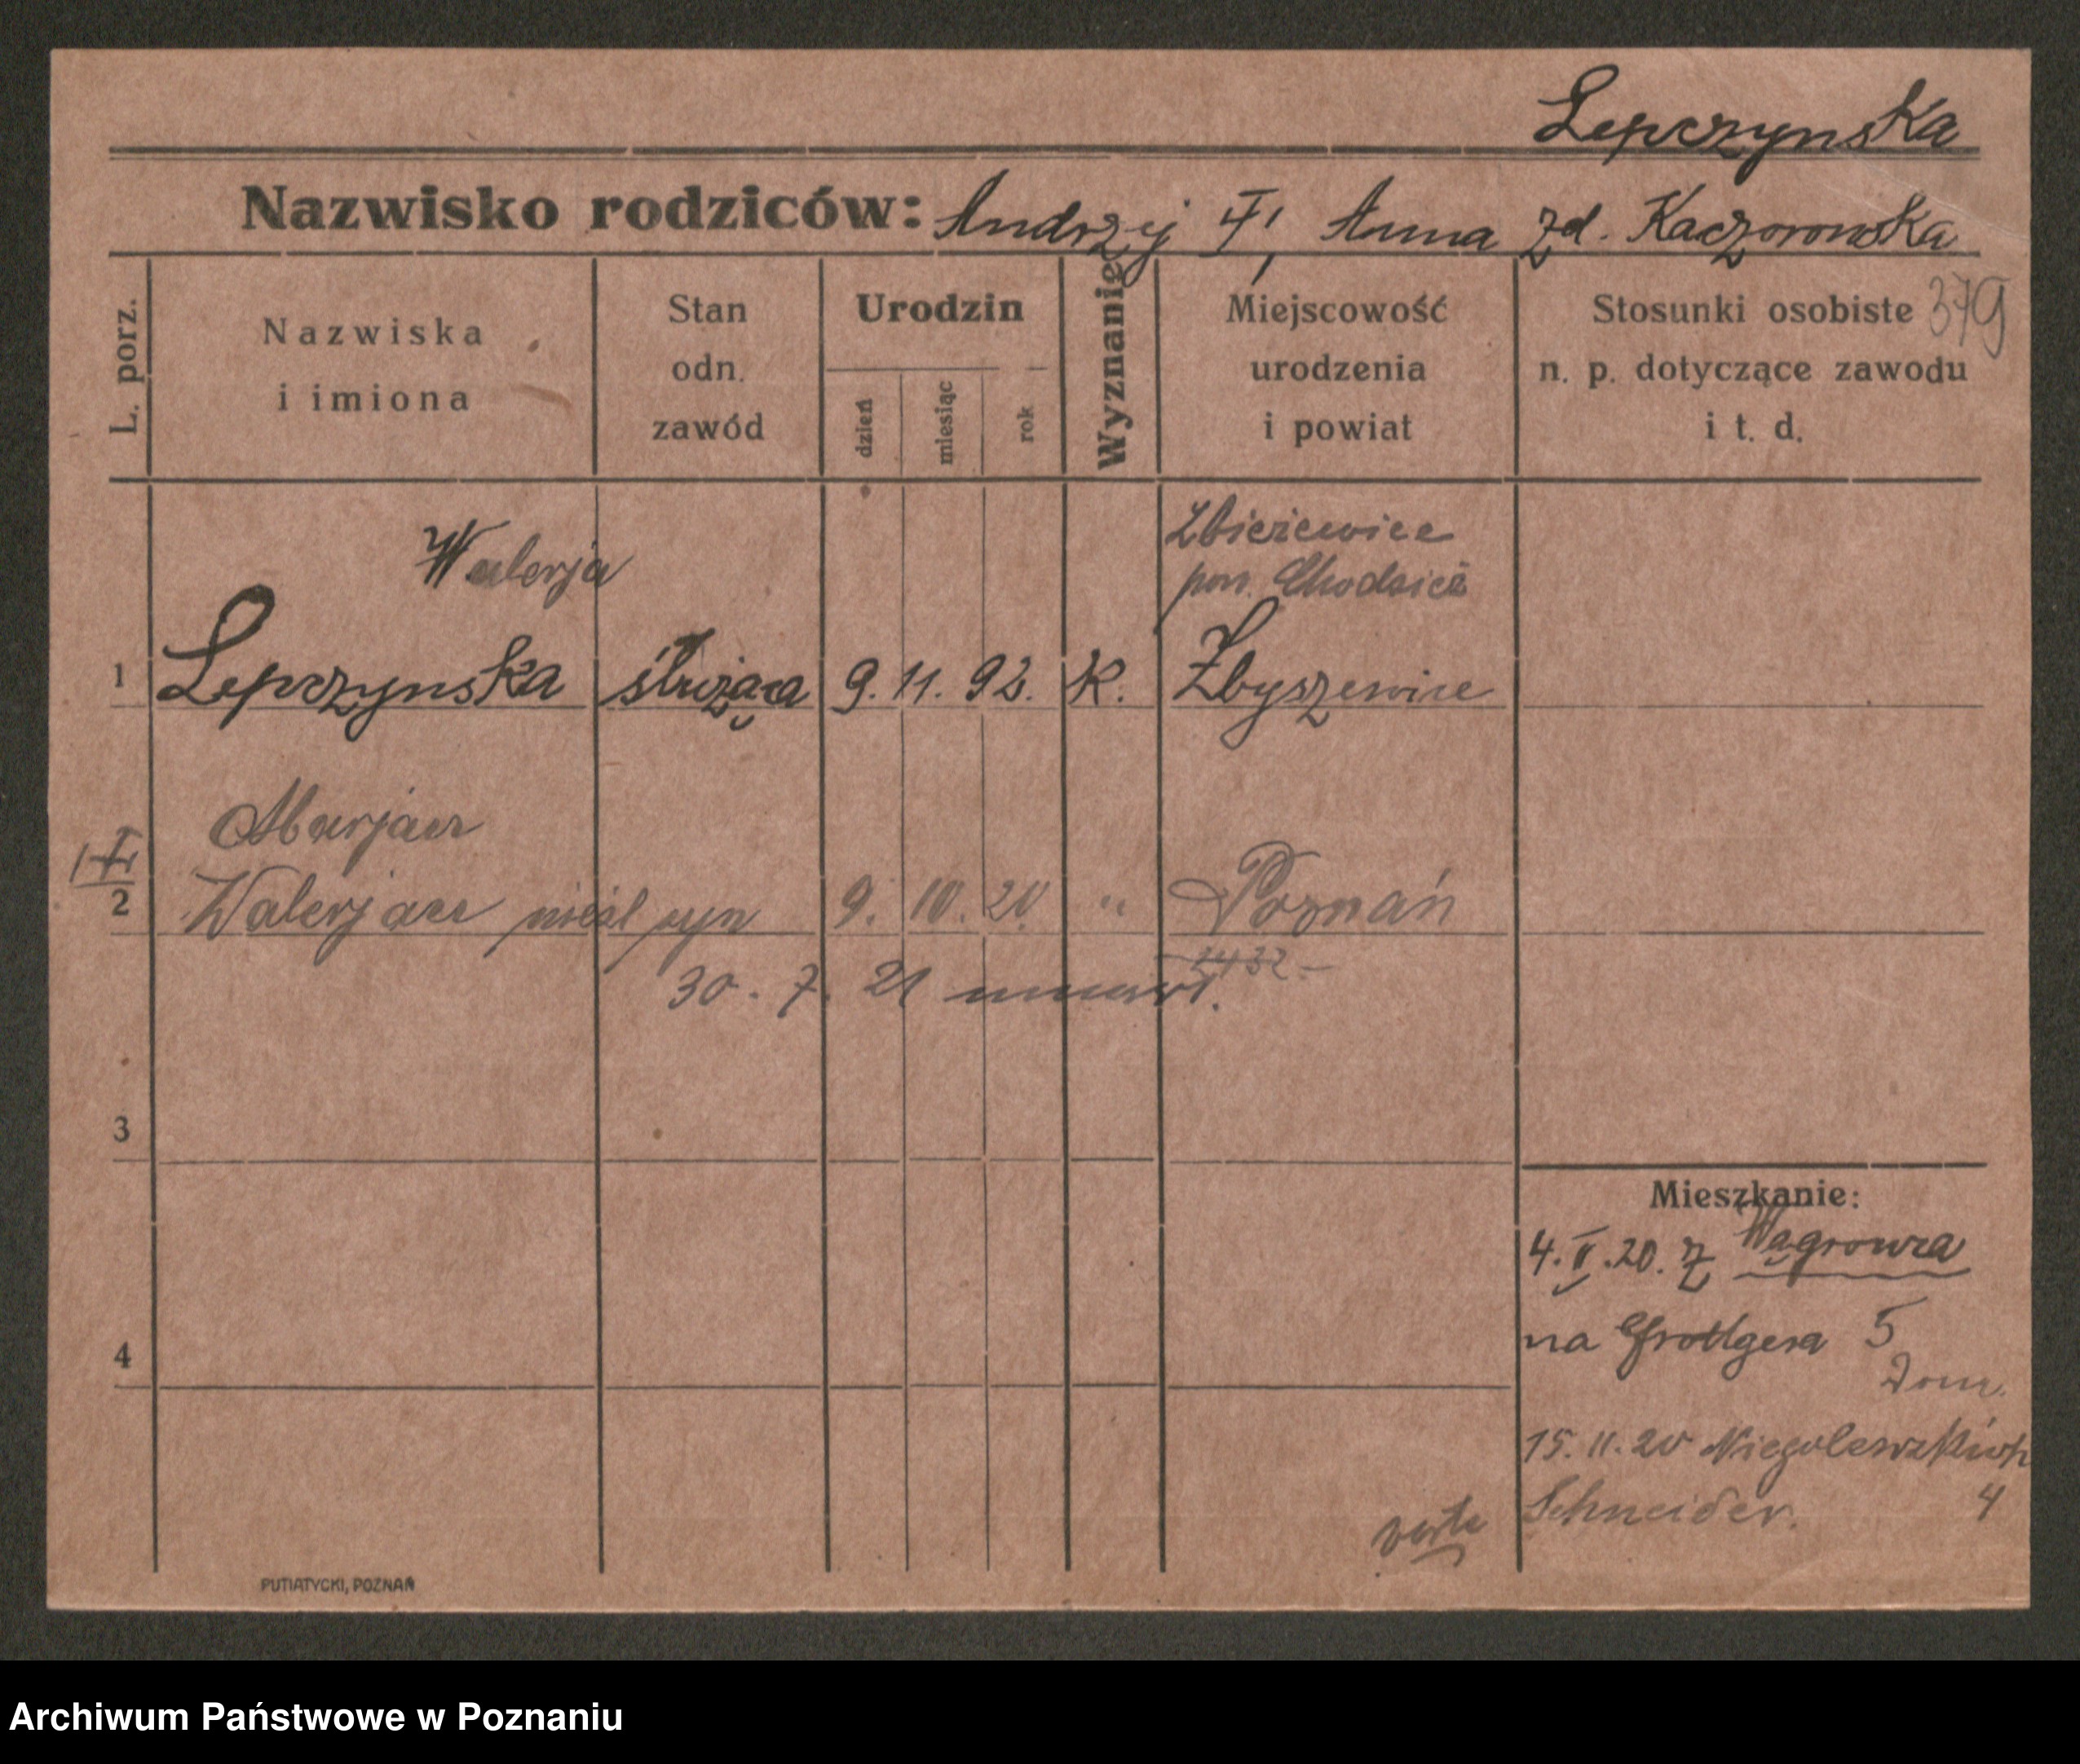 Lepczynska
Nazwisko rodziców: Andrzej †, Anna zd. Kaczorowska
379
L. porz.
Nazwiska
i imiona
Stan
odn.
zawód
Urodzin
dzień
miesiąc
rok
Wyznanie
Miejscowość
urodzenia
i powiat
Stosunki osobiste
n. p. dotyczące zawodu
i t. d.
Walerja
Zbiczewice
pow. Chodzież
1 Lepczynska służąca 9. 11. 92. K. Zbyszewice
Marjan
†
2 Walerjan nieśl syn 9. 10. 20. " Poznań
30. 7. 21 umarł.
3
4
Mieszkanie:
4. II. 20. z Wągrowca
na Grottgera 5
Dom.
15. 11. 20 Niegolewskich
Schneider. 4
verte
PUTIATYCKI, POZNAŃ
Archiwum Państwowe w Poznaniu